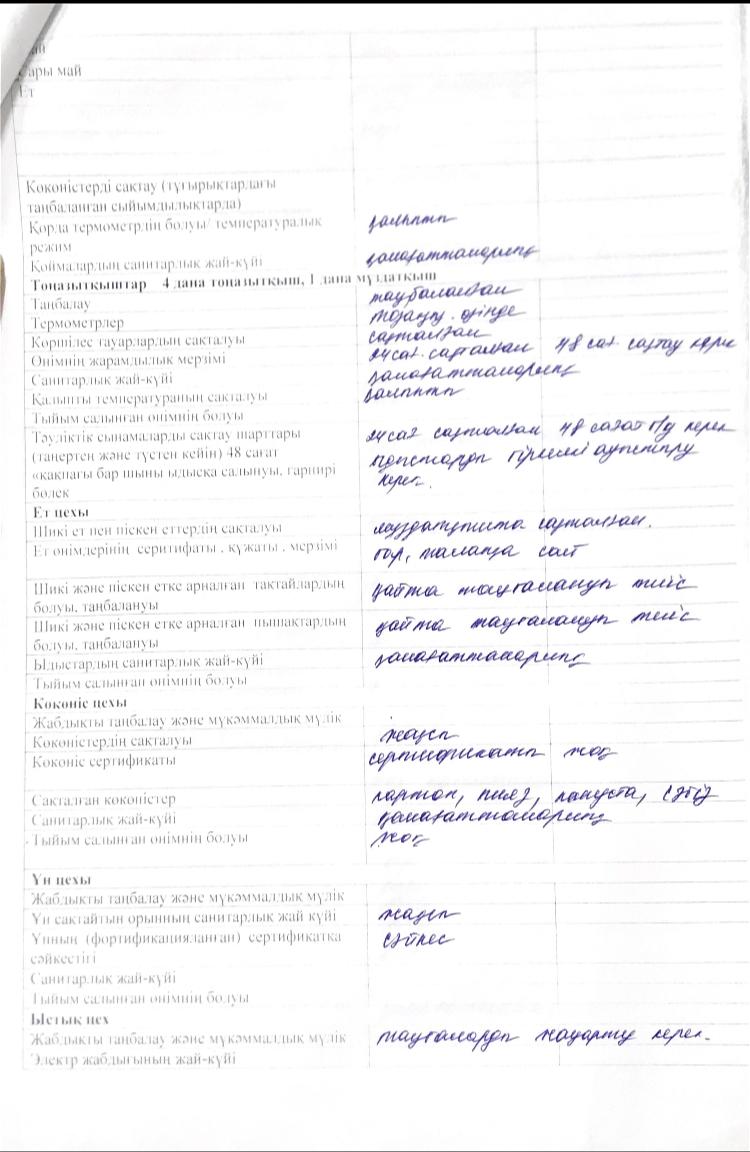 ай
Сары май
Ет
Көкөністерді сақтау (тұғырықтардағы
таңбаланған сыйымдылықтарда)
Қорда термометрдің болуы/ температуралық қалыпты
режим
Қоймалардың санитарлық жай-күйі қанағаттанарлық
Тоңазытқыштар 4 дана тоңазытқыш, 1 дана мұздатқыш
Таңбалау таңбаланған
Термометрлер тоңазы. өзінде
Көршілес тауарлардың сақталуы сақталған
Өнімнің жарамдылық мерзімі 24 сағ. сақталған 48 сағ. сақтау керек
Санитарлық жай-күйі қанағаттанарлық
Қалыпты температураның сақталуы қалыпты
Тыйым салынған өнімнің болуы
Тәуліктік сынамаларды сақтау шарттары 24 сағ сақталған 48 сағат б/у керек
(таңертен және түстен кейін) 48 сағат
«қақпағы бар шыны ыдысқа салынуы, гарнирі керек.
бөлек
Ет цехы
Шикі ет пен піскен еттердің сақталуы мұздатқышта сақталған.
Ет өнімдерінің серитифаты , құжаты , мерзімі бар, талапқа сай
Шикі және піскен етке арналған тақтайлардың қайта таңбалануы тиіс
болуы, таңбалануы
Шикі және піскен етке арналған пышақтардың қайта таңбалануы тиіс
болуы, таңбалануы
Ыдыстардың санитарлық жай-күйі қанағаттанарлық
Тыйым салынған өнімнің болуы
Көкөніс цехы
Жабдықты таңбалау және мүкәммалдық мүлік
Көкөністердің сақталуы жақсы
Көкөніс сертификаты сертификаты жоқ
Сақталған көкөністер картоп, пияз, капуста, сәбіз
Санитарлық жай-күйі қанағаттанарлық
Тыйым салынған өнімнің болуы жоқ
Ұн цехы
Жабдықты таңбалау және мүкәммалдық мүлік
Ұн сақтайтын орынның санитарлық жай күйі жақсы
Ұнның (фортификацияланған) сертификатқа сәйкес
сәйкестігі
Санитарлық жай-күйі
Тыйым салынған өнімнің болуы
Ыстық цех
Жабдықты таңбалау және мүкәммалдық мүлік таңбаларды жаңарту керек.
Электр жабдығының жай-күйі